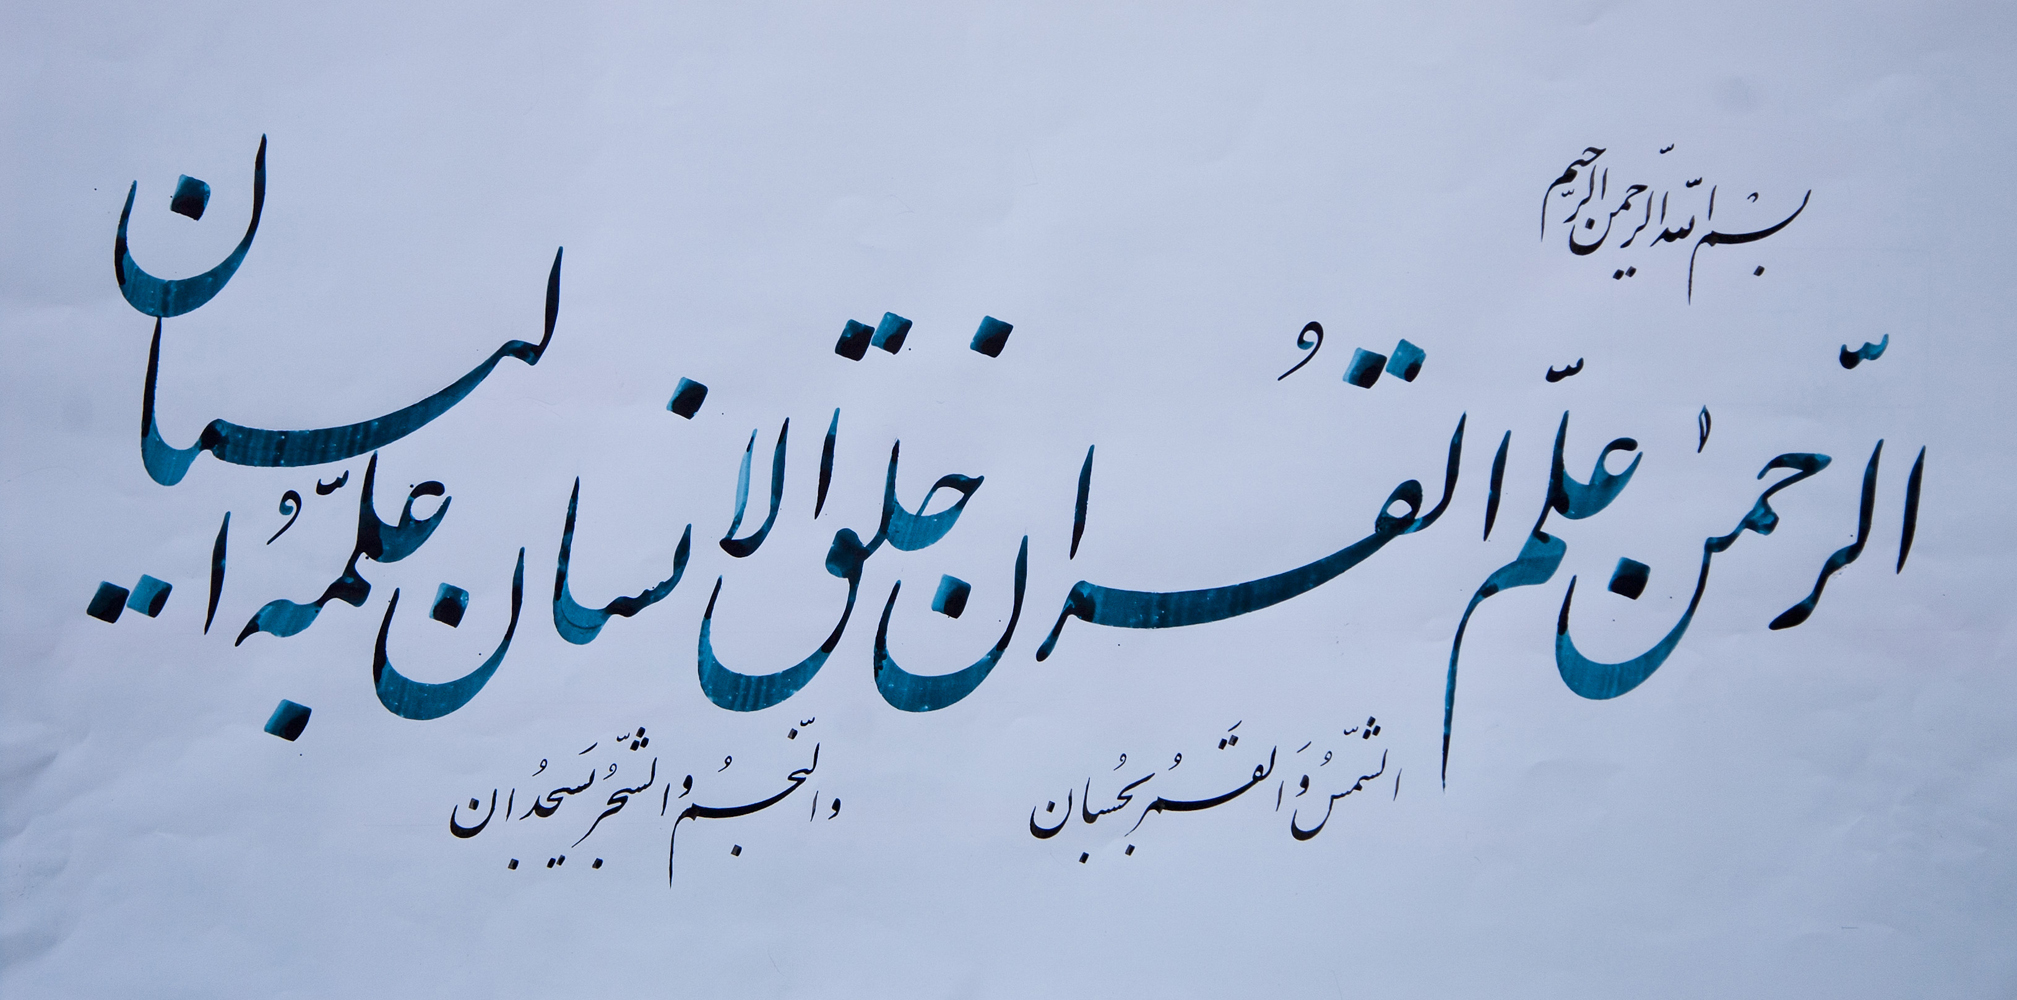 بسم الله الرحمن الرحیم
الرّحمٰن علّم القُران خلق الانسان علّمهُ البیان
الشّمسُ وَالقَمرُ بحُسبان
والنّجمُ والشّجرُ یَسجُدان